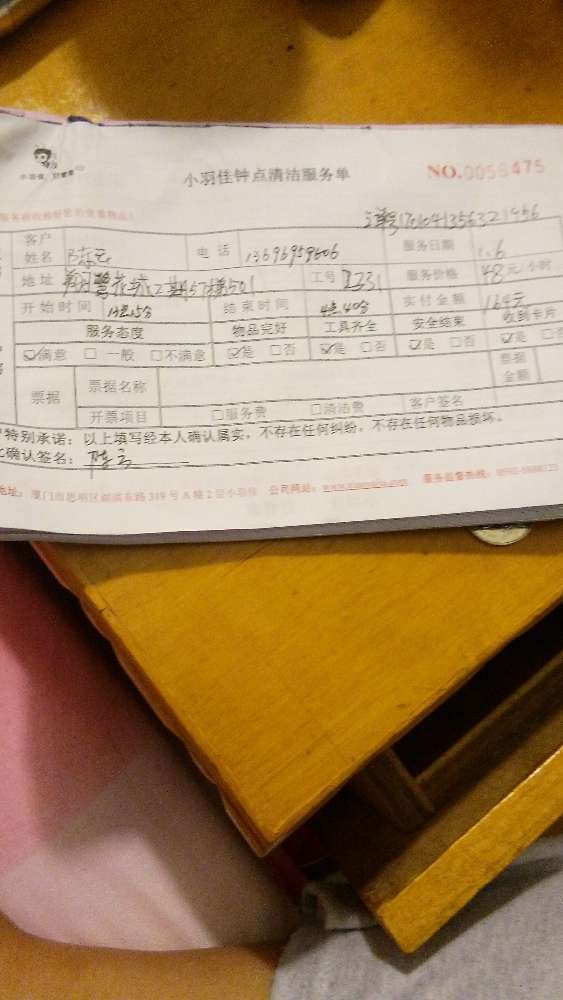 小羽佳钟点清洁服务单 NO.0058475
客户姓名 陈云 电话 13696959606 服务日期 1.6
地址 工号 服务价格 48元/小时
开始时间 1点15分 结束时间 4点40分 实付金额 164元
服务态度 物品完好 工具齐全 安全结束 收到卡片
☑满意 □一般 □不满意 ☑是 □否 ☑是 □否 ☑是 □否 ☑是
票据 票据名称 票据金额
开票项目 □服务费 □清洁费 客户签名
特别承诺:以上填写经本人确认属实,不存在任何纠纷,不存在任何物品损坏。
确认签名:陈云
地址:厦门市思明区湖滨东路319号A幢2层小羽佳 公司网站: 服务监督热线: